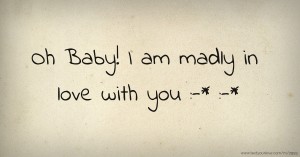 Oh Baby! I am madly in
love with you :-* :-*